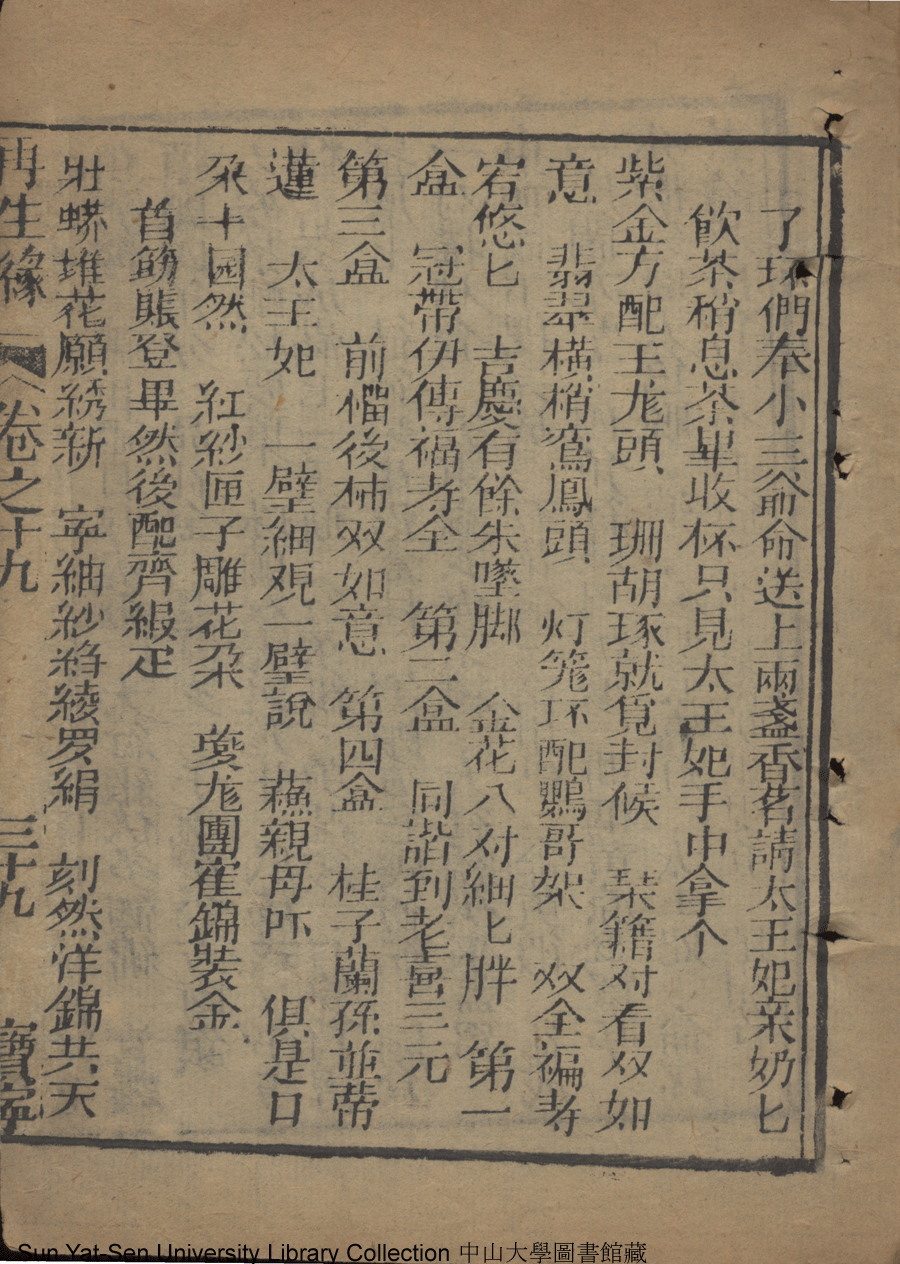 了环們奉小三爺命送上兩盞香茗請太王妃亲奶匕
飲茶稍息茶畢收杯只見太王妃手中拿个
紫金方配玉龙頭 珊胡琢就覓封候 琹籍对看双如
意 翡翠橫梢鸞鳳頭 灯笼环配鸚哥架 双全福寿
宕悠匕 吉慶有餘朱墜脚 金花八对細匕胖 第一
盒 冠帶伊傅福寿全 第二盒 同諧到老喜三元
第三盒 前檑後柿双如意 第四盒 桂子蘭孫並蒂
蓮 太王妃 一壁細观一壁說 蘓親母吓 俱是口
朶十囬然 紅紗匣子雕花朶 夔龙團寉錦装金
首飭賬登畢然後配齊緞疋
壯蟒堆花願綉新 寕紬紗縐綾罗絹 刻然洋錦共天
再生緣 卷之十九 三十九 寶寕
Sun Yat-Sen University Library Collection 中山大學圖書館藏